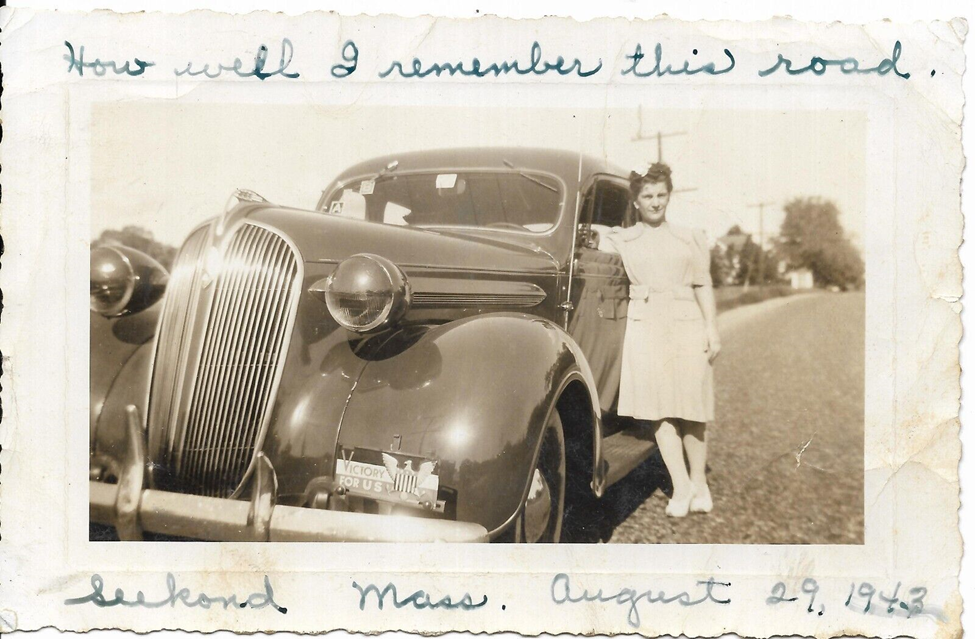 How well I remember this road.
A
VICTORY
FOR US
Seekond Mass. August 29, 1943